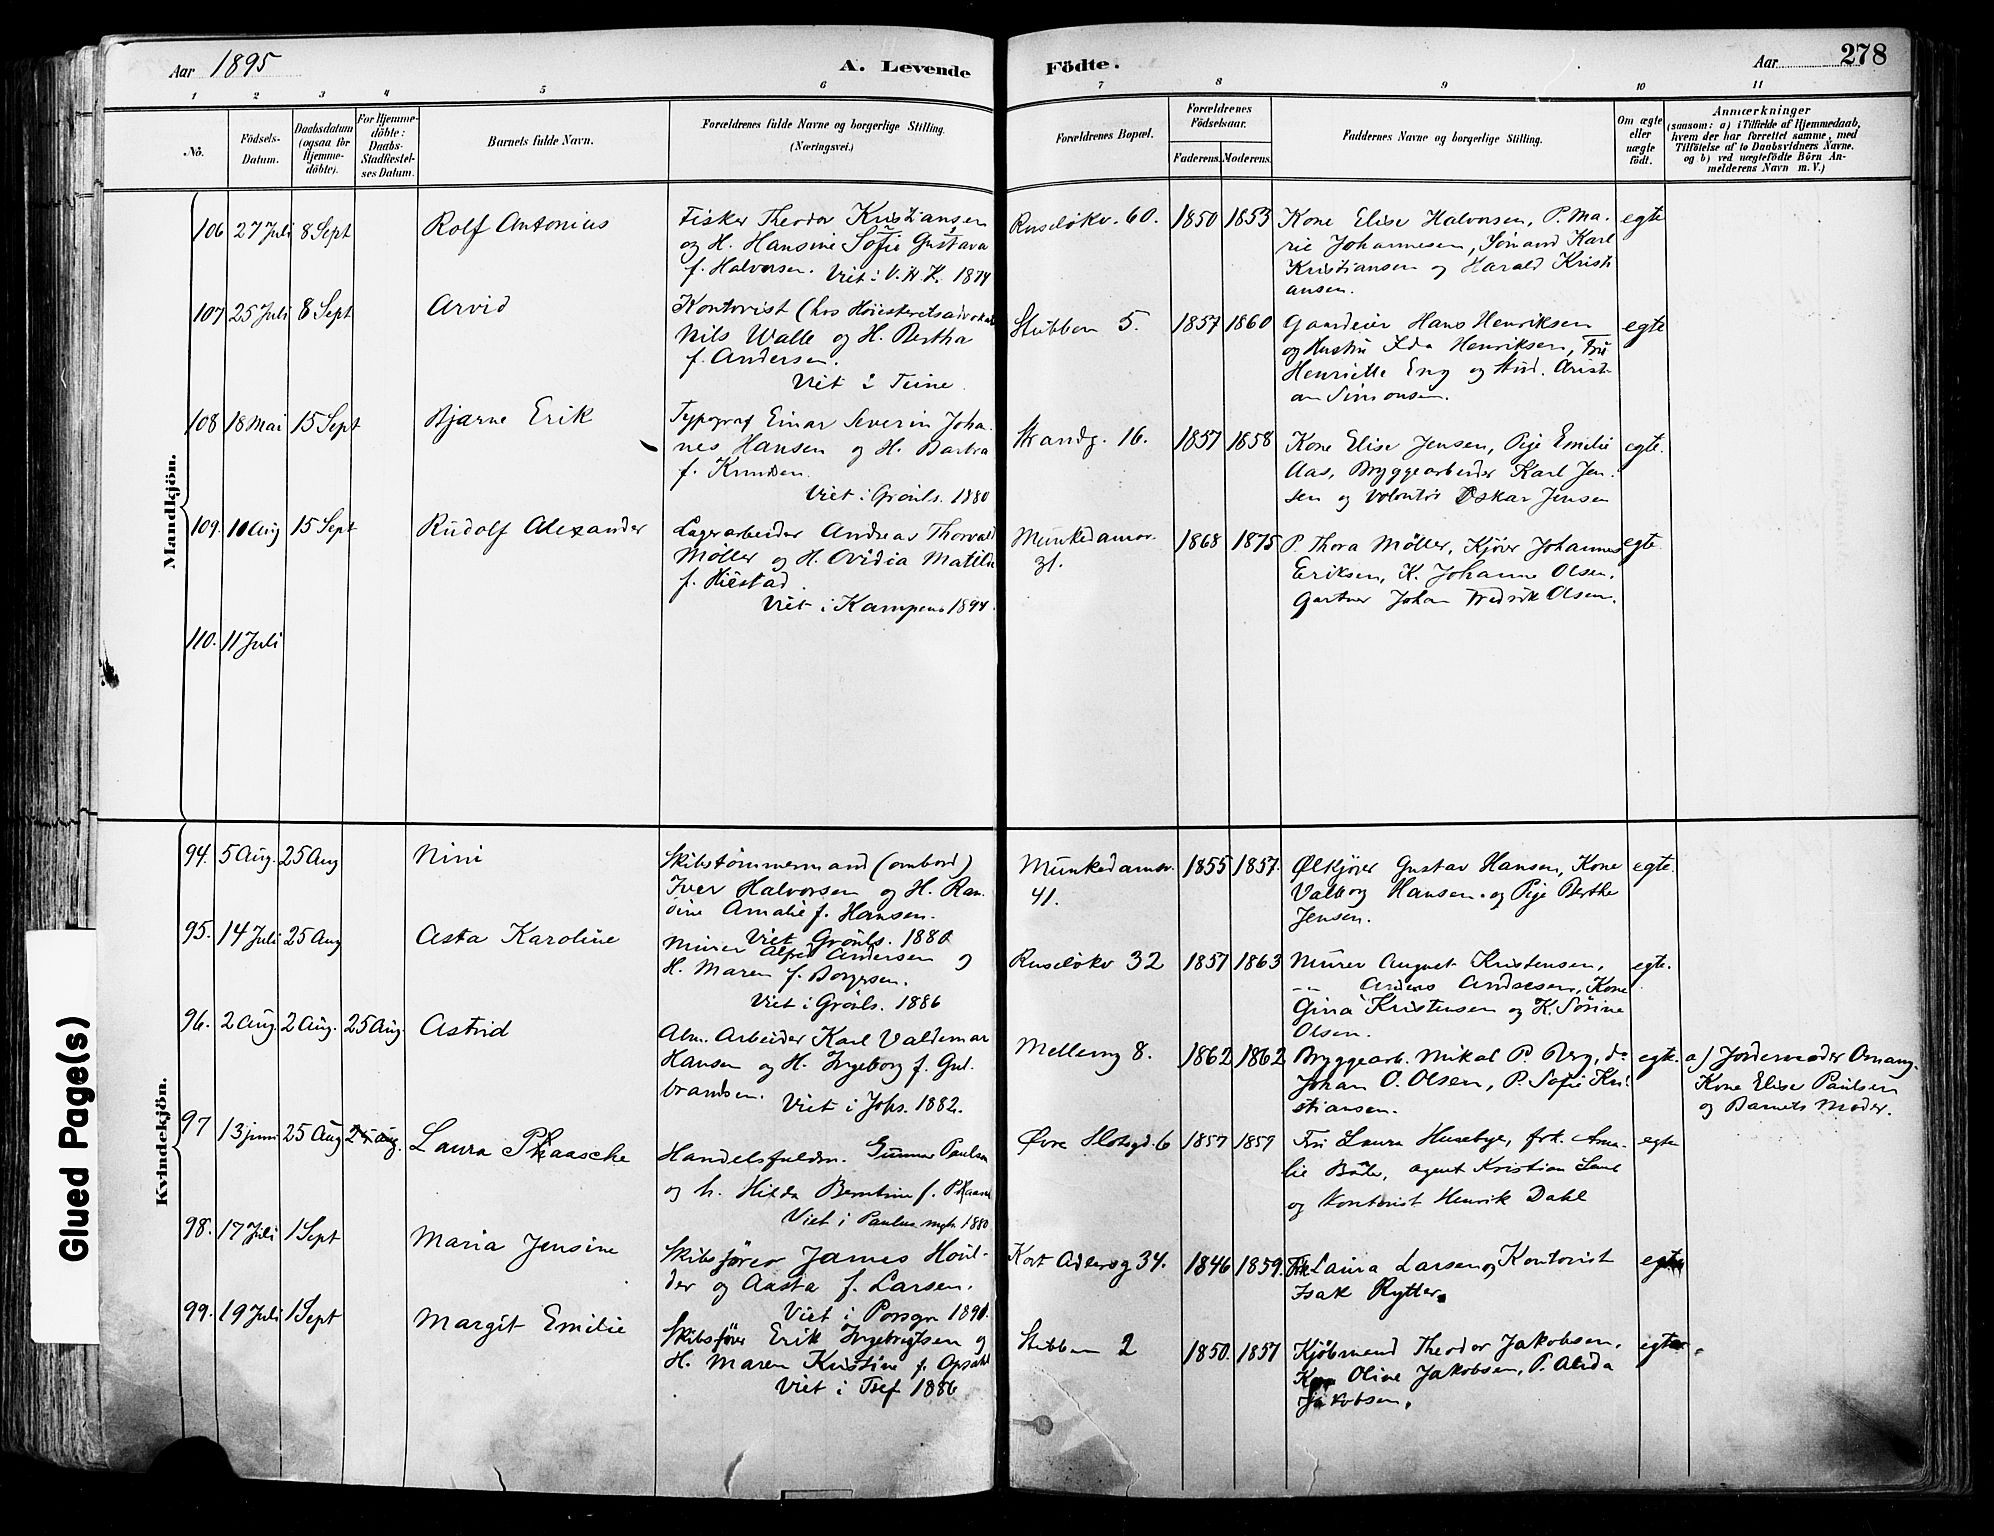 Aar 1895
A. Levende
Födte.
Aar
278
1 2 3 4 5 6 7 8 9 10 11
No.
Födsels-
Datum.
Daabsdatum
(ogsaa för
Hjemme-
döbte).
For Hjemme-
döbte:
Daabs-
Stadfæstel-
ses Datum.
Barnets fulde Navn.
Forældrenes fulde Navne og borgerlige Stilling.
(Næringsvei.)
Forældrenes Bopæl.
Forældrenes
Födselsaar.
Faderens. Moderens.
Faddernes Navne og borgerlige Stilling.
Om ægte
eller
uægte
födt.
Anmærkninger
(saasom: a) i Tilfælde af Hjemmedaab,
hvem der har forrettet samme, med
Tilföielse af to Daabsvidners Navne.
og b) ved uægtefödte Börn An-
melderens Navn m. V.)
Mandkjön.
106 27 Juli 8 Sept
Rolf Antonius
Fisker Theodor Kristiansen
og H. Hansine Sofie Gustava
f. Halvorsen.
Viet i V. A. K. 1874
Ruseløkv. 60.
1850 1853
Kone Elise Halvorsen, P. Ma-
rie Johannesen, Sömand Karl
Kristiansen og Harald Kristi
ansen.
egte
107 25 Juli 8 Sept
Arvid
Kontorist (hos Høiesteretsadvokat
Nils Walle og H. Bertha
f. Andersen.
Viet i Teine.
Stubben 5.
1857 1860
Gaardeier Hans Henriksen
og Hustru Ida Henriksen, Fru
Henriette Eng og Stud. Krist-
an Simonsen.
egte
108 18 Mai 15 Sept
Bjarne Erik
Typograf Einar Severin Joha-
nes Hansen og H. Barbra
f. Knudsen.
Viet i Grönls. 1880
Strandg. 16.
1857 1858
Kone Elise Jensen, Pige Emilie
Aas, Bryggearbeider Karl Jen-
sen og Volontör Oskar Jensen
egte.
109. 10 Aug 15 Sept
Rudolf Alexander
Lagerarbeider Andreas Thorvald
Møller og H. Ovidia Matilde
f. Hiestad.
Viet i Kampens 1894.
Munkedamsv.
31.
1868 1875
P. Thora Møller, Kjører Johannes
Eriksen, K. Johanne Olsen,
Gartner Johan Fredrik Olsen.
egte.
110. 11 Juli
Kvindekjön.
94. 5 Aug. 25 Aug
Nini
Skibstömmermand (ombord)
Iver Halvorsen og H. Ran-
dine Amalie f. Hansen.
Viet Grönls. 1880
Munkedamsv.
41.
1855 1857.
Ølkjører Gustav Hansen, Kone
Valborg Hansen og Pige Berthe
Jensen.
egte.
95. 14 Juli 25 Aug
Asta Karoline
Murer Alfred Andersen og
H. Maren f. Borgersen.
Viet i Grönls. 1886
Ruseløkv 32
1857 1863
Murer August Kristensen,
Anders Andresen, Kone
Gina Kristensen og K. Sørine
Olsen.
egte.
96. 2 Aug. 2 Aug. 25 Aug.
Astrid
Alm. Arbeider Karl Valdemar
Hansen og H. Ingeborg f. Gul-
brandsen.
Viet i Johs. 1882.
Mellemg 8.
1862 1862
Bryggearb. Mikal P. Berg, do
Johan O. Olsen, P. Sofie Kri
stiansen.
egte.
a) Jordemoder Omang
Kone Elise Paulsen
og Barnets Moder.
97 13 juni 25 Aug 25 Aug.
Laura Phaaseke
Handelsfuldm. Gunnar Paulsen
og h. Hilda Berntine f.
Viet i Paulus mgh. 1880
Øvre Slotsgd. 6
1857 1857
Fru Laura Husebye, frk. Ama-
lie Böe, agent Kristian
og Kontorist Henrik Dahl
egte
98. 17 Juli 1 Sept
Maria Jensine
Skibsfører James Houl-
der og Aasta f. Larsen.
Viet i Porsgr 1890.
Kort Adlersg 34.
1846 1859.
Frk Laura Larsen og Kontorist
Isak Rytter.
egte
99. 19 Juli 1 Sept
Margit Emilie
Skibsfører Erik Ingebrigtsen og
H. Maren Kristine f. Opsahl
Viet i Tsef 1886
Stubben 2
1850. 1857
Kjøbmand Theodor Jakobsen,
Kone Oline Jakobsen, P. Alida
Jakobsen.
egte.
Glued Page(s)